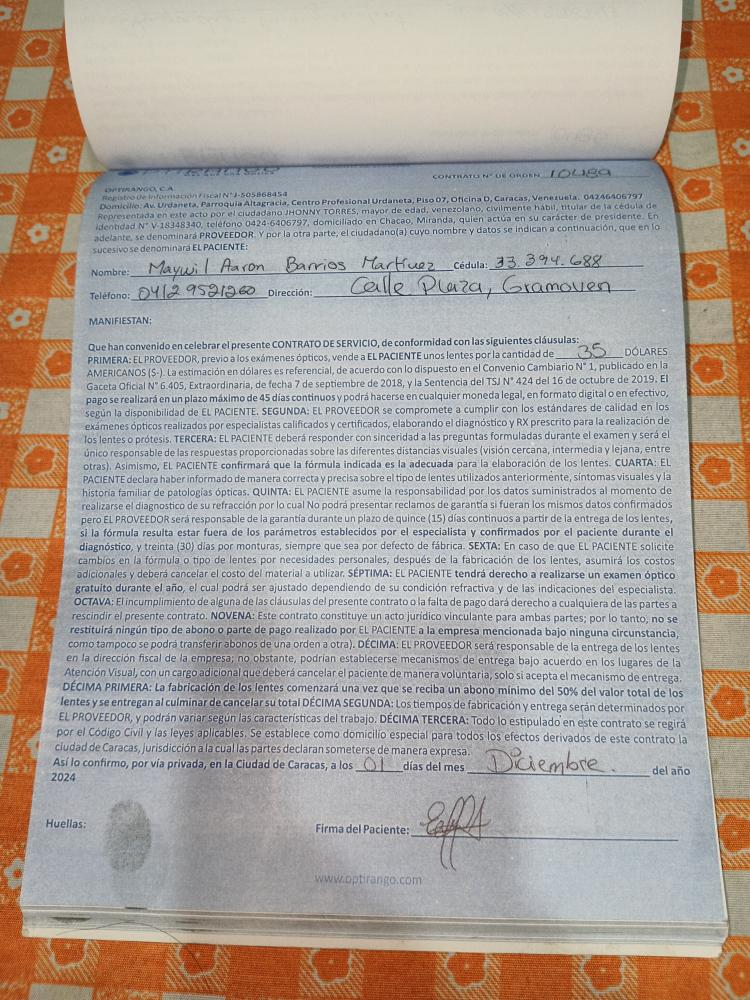 CONTRATO N° DE ORDEN 10489
OPTIRANGO, C.A
Registro de Información Fiscal N°J-505868454
Domicilio: Av. Urdaneta, Parroquia Altagracia, Centro Profesional Urdaneta, Piso 07, Oficina D, Caracas, Venezuela. 04246406797
Representada en este acto por el ciudadano JHONNY TORRES, mayor de edad, venezolano, civilmente hábil, titular de la cédula de
identidad N° V-18348340, teléfono 0424-6406797, domiciliado en Chacao, Miranda, quien actúa en su carácter de presidente. En
adelante, se denominará PROVEEDOR. Y por la otra parte, el ciudadano(a) cuyo nombre y datos se indican a continuación, que en lo
sucesivo se denominará EL PACIENTE:
Nombre: Maywil Aaron Barrios Martínez Cédula: 33.394.688
Teléfono: 0412 9521260 Dirección: Calle Plaza, Gramoven
MANIFIESTAN:
Que han convenido en celebrar el presente CONTRATO DE SERVICIO, de conformidad con las siguientes cláusulas:
PRIMERA: EL PROVEEDOR, previo a los exámenes ópticos, vende a EL PACIENTE unos lentes por la cantidad de 35 DÓLARES
AMERICANOS ($-). La estimación en dólares es referencial, de acuerdo con lo dispuesto en el Convenio Cambiario N° 1, publicado en la
Gaceta Oficial N° 6.405, Extraordinaria, de fecha 7 de septiembre de 2018, y la Sentencia del TSJ N° 424 del 16 de octubre de 2019. El
pago se realizará en un plazo máximo de 45 días continuos y podrá hacerse en cualquier moneda legal, en formato digital o en efectivo,
según la disponibilidad de EL PACIENTE. SEGUNDA: EL PROVEEDOR se compromete a cumplir con los estándares de calidad en los
exámenes ópticos realizados por especialistas calificados y certificados, elaborando el diagnóstico y RX prescrito para la realización de
los lentes o prótesis. TERCERA: EL PACIENTE deberá responder con sinceridad a las preguntas formuladas durante el examen y será el
único responsable de las respuestas proporcionadas sobre las diferentes distancias visuales (visión cercana, intermedia y lejana, entre
otras). Asimismo, EL PACIENTE confirmará que la fórmula indicada es la adecuada para la elaboración de los lentes. CUARTA: EL
PACIENTE declara haber informado de manera correcta y precisa sobre el tipo de lentes utilizados anteriormente, síntomas visuales y la
historia familiar de patologías ópticas. QUINTA: EL PACIENTE asume la responsabilidad por los datos suministrados al momento de
realizarse el diagnóstico de su refracción por lo cual No podrá presentar reclamos de garantía si fueran los mismos datos confirmados
pero EL PROVEEDOR será responsable de la garantía durante un plazo de quince (15) días continuos a partir de la entrega de los lentes,
si la fórmula resulta estar fuera de los parámetros establecidos por el especialista y confirmados por el paciente durante el
diagnóstico, y treinta (30) días por monturas, siempre que sea por defecto de fábrica. SEXTA: En caso de que EL PACIENTE solicite
cambios en la fórmula o tipo de lentes por necesidades personales, después de la fabricación de los lentes, asumirá los costos
adicionales y deberá cancelar el costo del material a utilizar. SÉPTIMA: EL PACIENTE tendrá derecho a realizarse un examen óptico
gratuito durante el año, el cual podrá ser ajustado dependiendo de su condición refractiva y de las indicaciones del especialista.
OCTAVA: El incumplimiento de alguna de las cláusulas del presente contrato o la falta de pago dará derecho a cualquiera de las partes a
rescindir el presente contrato. NOVENA: Este contrato constituye un acto jurídico vinculante para ambas partes; por lo tanto, no se
restituirá ningún tipo de abono o parte de pago realizado por EL PACIENTE a la empresa mencionada bajo ninguna circunstancia,
como tampoco se podrá transferir abonos de una orden a otra). DÉCIMA: EL PROVEEDOR será responsable de la entrega de los lentes
en la dirección fiscal de la empresa; no obstante, podrían establecerse mecanismos de entrega bajo acuerdo en los lugares de la
Atención Visual, con un cargo adicional que deberá cancelar el paciente de manera voluntaria, solo si acepta el mecanismo de entrega.
DÉCIMA PRIMERA: La fabricación de los lentes comenzará una vez que se reciba un abono mínimo del 50% del valor total de los
lentes y se entregan al culminar de cancelar su total DÉCIMA SEGUNDA: Los tiempos de fabricación y entrega serán determinados por
EL PROVEEDOR, y podrán variar según las características del trabajo. DÉCIMA TERCERA: Todo lo estipulado en este contrato se regirá
por el Código Civil y las leyes aplicables. Se establece como domicilio especial para todos los efectos derivados de este contrato la
ciudad de Caracas, jurisdicción a la cual las partes declaran someterse de manera expresa.
Así lo confirmo, por vía privada, en la Ciudad de Caracas, a los 01 días del mes Diciembre. del año
2024
Huellas:
Firma del Paciente:
www.optirango.com